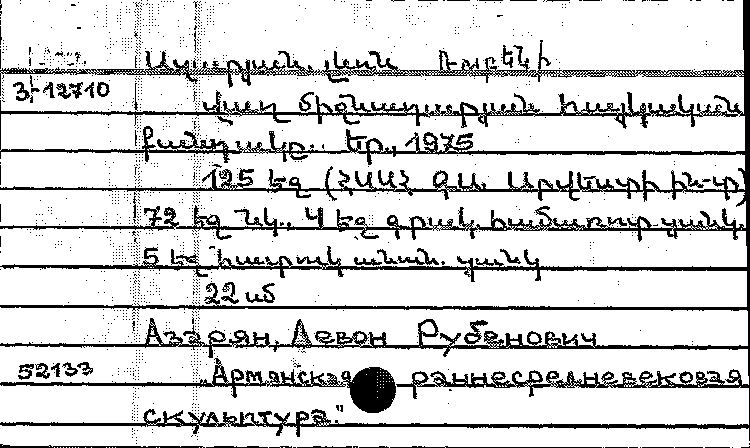 Ազարյան, Լևոն Ռուբենի
3-12710
Վաղ միջնադարյան հայկական
քանդակը. Եր., 1975
125 եզ (ՀՍՍՀ ԳԱ. Արվեստի ին-տ)
72 եզ նկ., 4 եզ գրակ. համառոտ ցանկ.
5 եզ հատուկ անուն. ցանկ
22 սմ
Азарян, Левон Рубенович
52133
„Армянская раннесредневековая
скульптура."